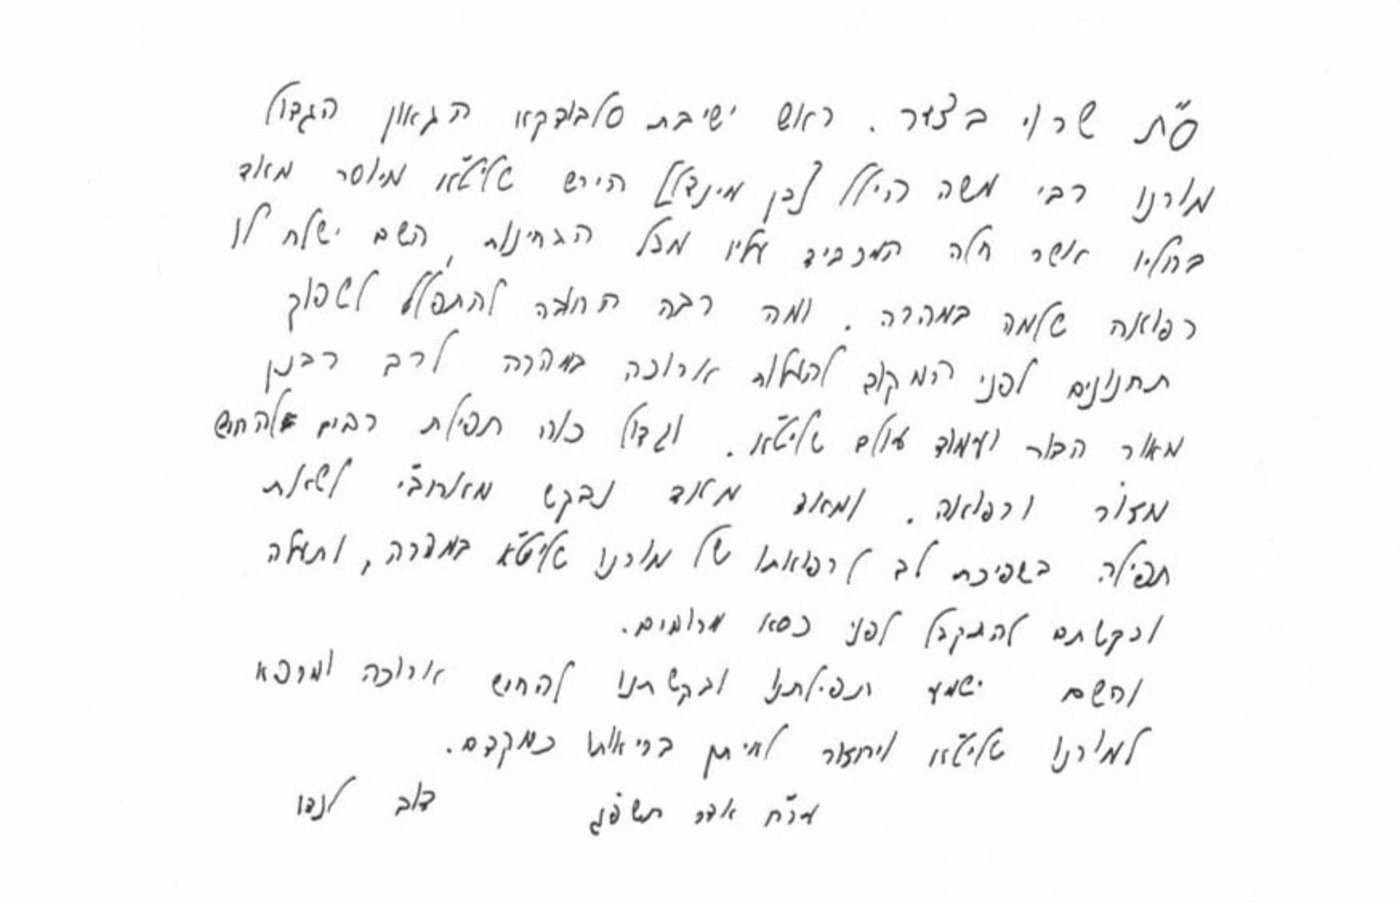 ס"ת שרוי בצער. ראש ישיבת סלבודקא הגאון הגדול
מורנו רבי משה הילל [בן מינדל] הירש שליט"א מיוסר מאוד
בחליו אשר חלה המכביד עליו מכל הבחינות, השם ישלח לו
רפואה שלמה במהרה. ומה רבה החובה להתפלל לשפוך
תחנונים לפני המקום להעלות ארוכה במהרה לרב רבנן
מאור הדור ועמוד עולם שליט"א. וגדול כוח תפילת רבים להחיש
מזור ורפואה. ומאוד מאוד נבקש מאחב"י לשאת
תפילה בשפיכת לב לרפואתו של מורנו שליט"א במהרה, ותעלה
ובקשתם להתקבל לפני כסא מרומים.
והשם ישמע תפילתנו ובקשתנו להחיש ארוכה ומרפא
למורנו שליט"א ויחזור לאיתן בריאותו כמקדם.
ער"ח אדר תשפ"ג דוב לנדו